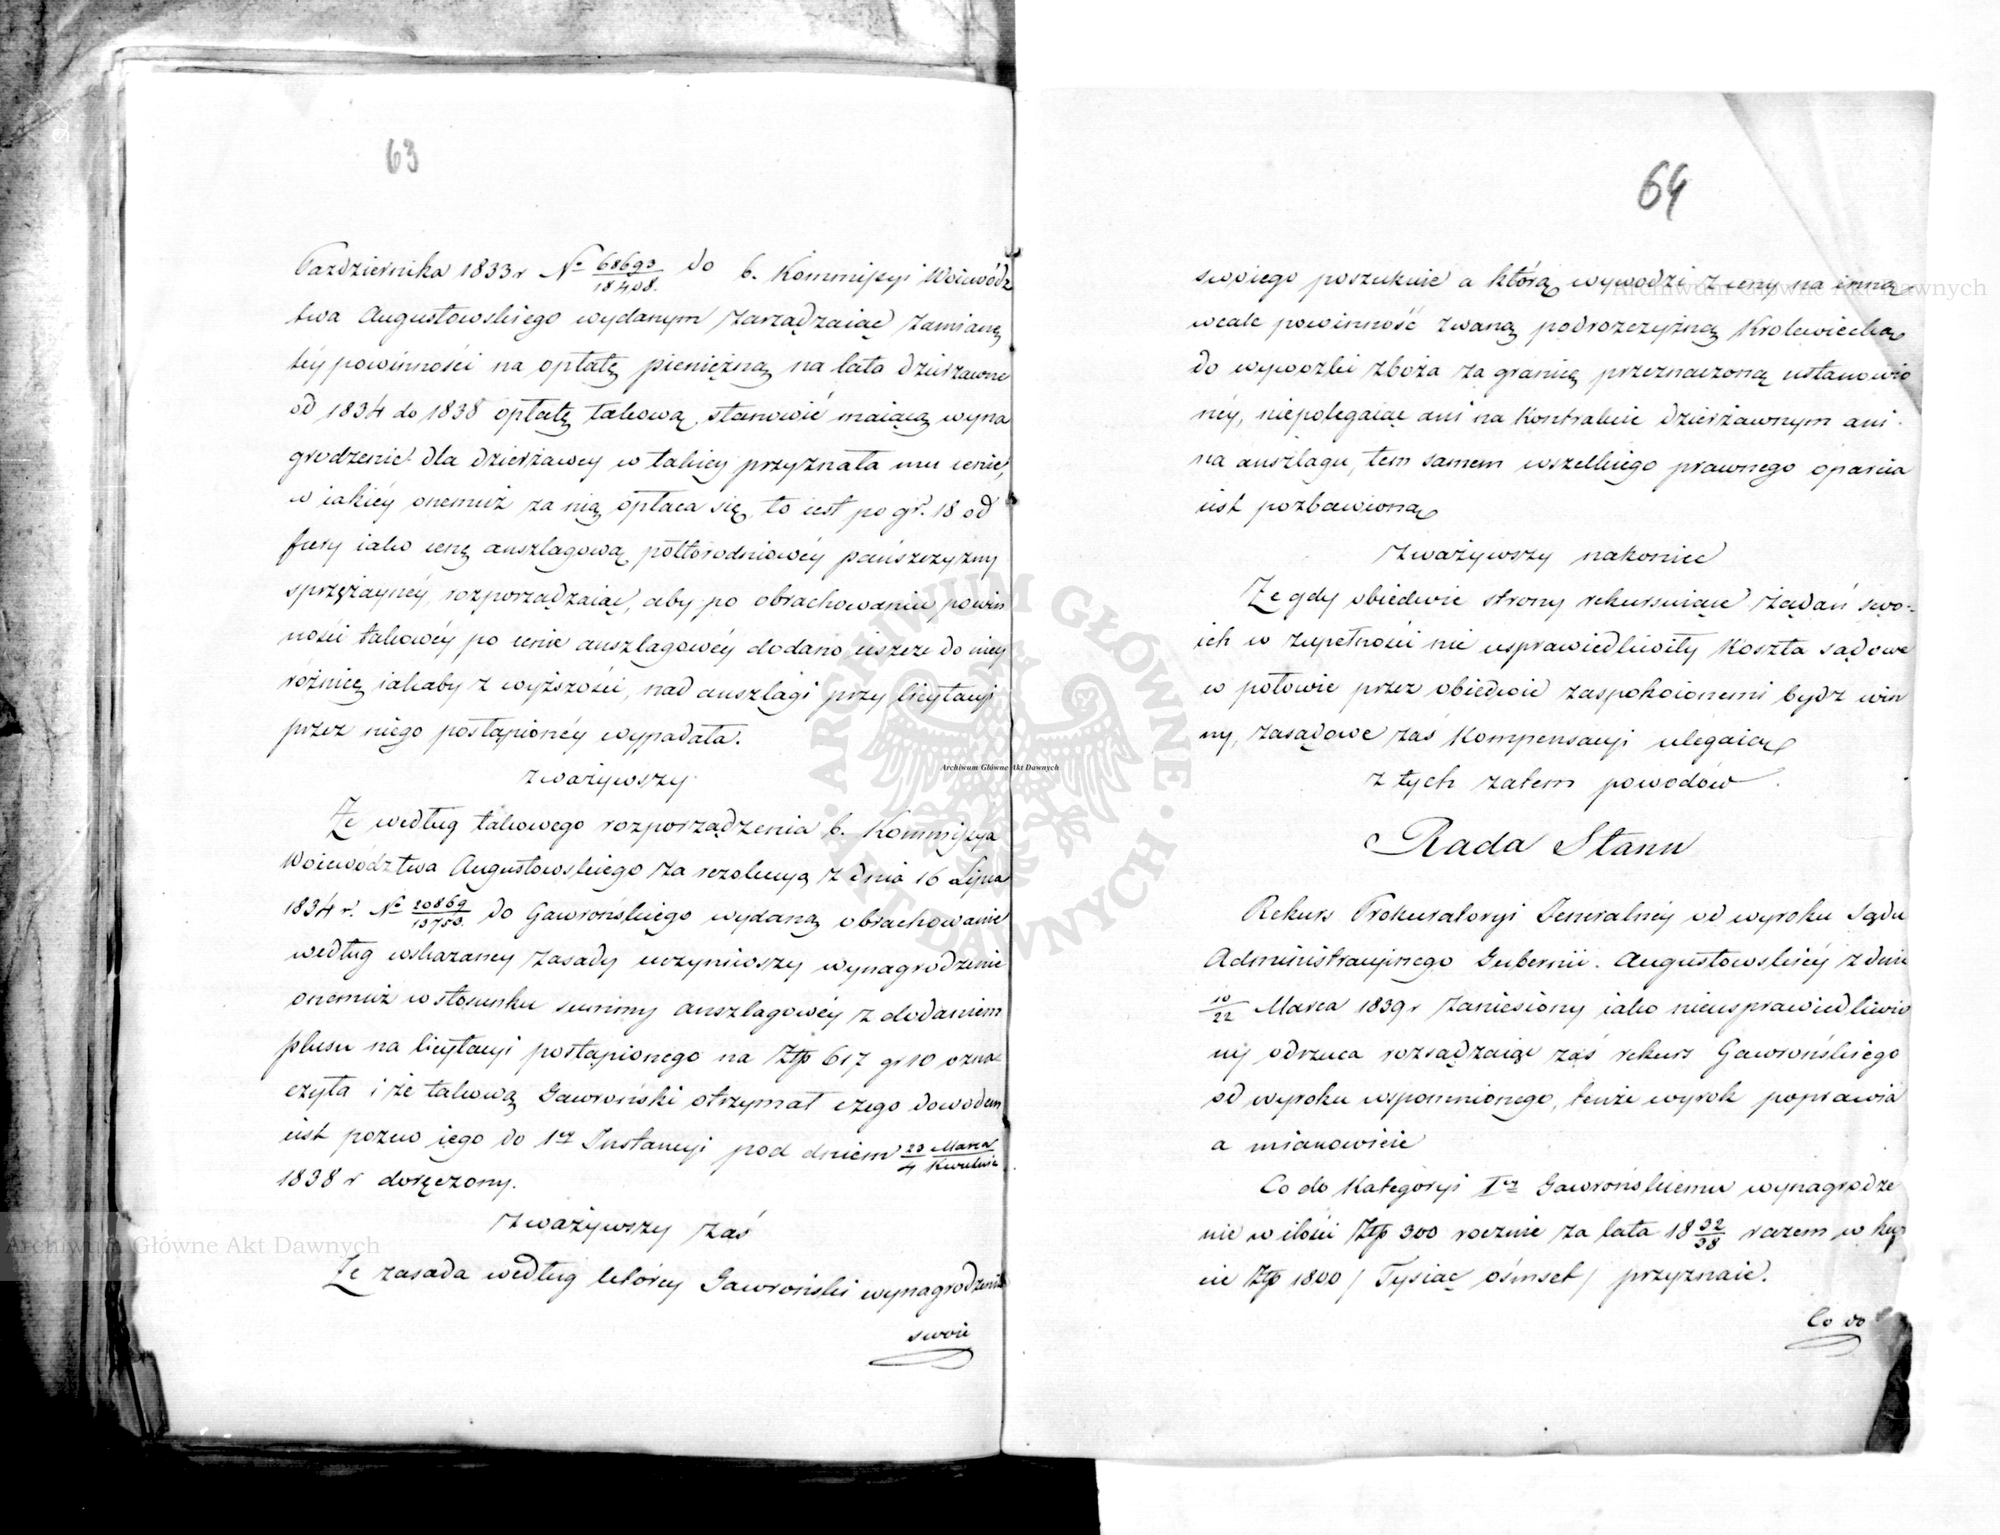 63
Października 1833 r N° 68693/18408. do b. Kommissyi Woiewódz
twa Augustowskiego wydanym zarządzaiąc zamianę
téy powinności na opłatę pieniężną na lata dzierzawne
od 1834 do 1838 opłatę takową, stanowić maiącą wyna
grodzenie dla dzierżawcy w takiey przyznała mu cenie,
w iakiéy onemuż za nią opłaca się, to iest po gr. 18 od
fury iako cenę auszlagową półtorodniowéy pańszczyzny
sprzężaynéy, rozporządzaiąc, aby po obrachowaniu powin
ności takowéy po cenie auszlagowéy dodano ieszcze do niey
różnicę iakaby z wyższości, nad auszlagi przy licytacyi
przez niego postąpionéy wypadała.
zważywszy
Że według takowego rozporządzenia b. Kommissya
Woiewództwa Augustowskiego za rezolucyą z dnia 16 Lipca
1834 r. N° 20869/13753. do Gawrońskiego wydaną obrachowanie
według wskazaney zasady uczyniwszy wynagrodzenie
onemuż w stosunku summy auszlagowéy z dodaniem
plusu na licytacyi postąpionego na Złp 617 gr 10 ozna
czyła i że takową Gawroński otrzymał czego dowodem
iest pozew iego do 1ey Instancyi pod dniem 23/4 Marca/Kwietnia
1838 r doręczony.
zważywszy zaś
Że zasada według którey Gawroński wynagrodzenia
swoie
64
swoiego poszukuie a którą wywodzi z ceny na inną
wcale powinność zwaną podrozczyzną Krolewiecką
do wywozki zboża za granicę przeznaczoną ustanowio
néy, niepolegaiąc ani na Kontrakcie dzierżawnym ani
na auszlagu, tem samem wszelkiego prawnego oparcia
iest pozbawioną
zważywszy nakoniec
Że gdy obiedwie strony rekursuiące żądań swo-
ich w zupełności nie usprawiedliwiły Koszta sądowe
w połowie przez obiedwie zaspokoionemi bydz win
ny, zasądowe zaś Kompensacyi ulegaią
z tych zatem powodów
Rada Stanu
Rekurs Prokuratoryi Jeneralnéy od wyroku Sądu
Administracyinego Gubernii Augustowskiéy z dnia
10/22 Marca 1839 r zaniesiony iako nieusprawiedliwio
ny odrzuca rozsądzaiąc zaś rekurs Gawrońskiego
od wyroku wspomnionego, tenże wyrok poprawia
a mianowicie
Co do Kategoryi Iey Gawrońskiemu wynagrodze
nie w ilości Złp 300 rocznie za lata 18 32/38 razem w kwo
cie Złp 1800 / Tysiąc ośmset / przyznaie.
Co do